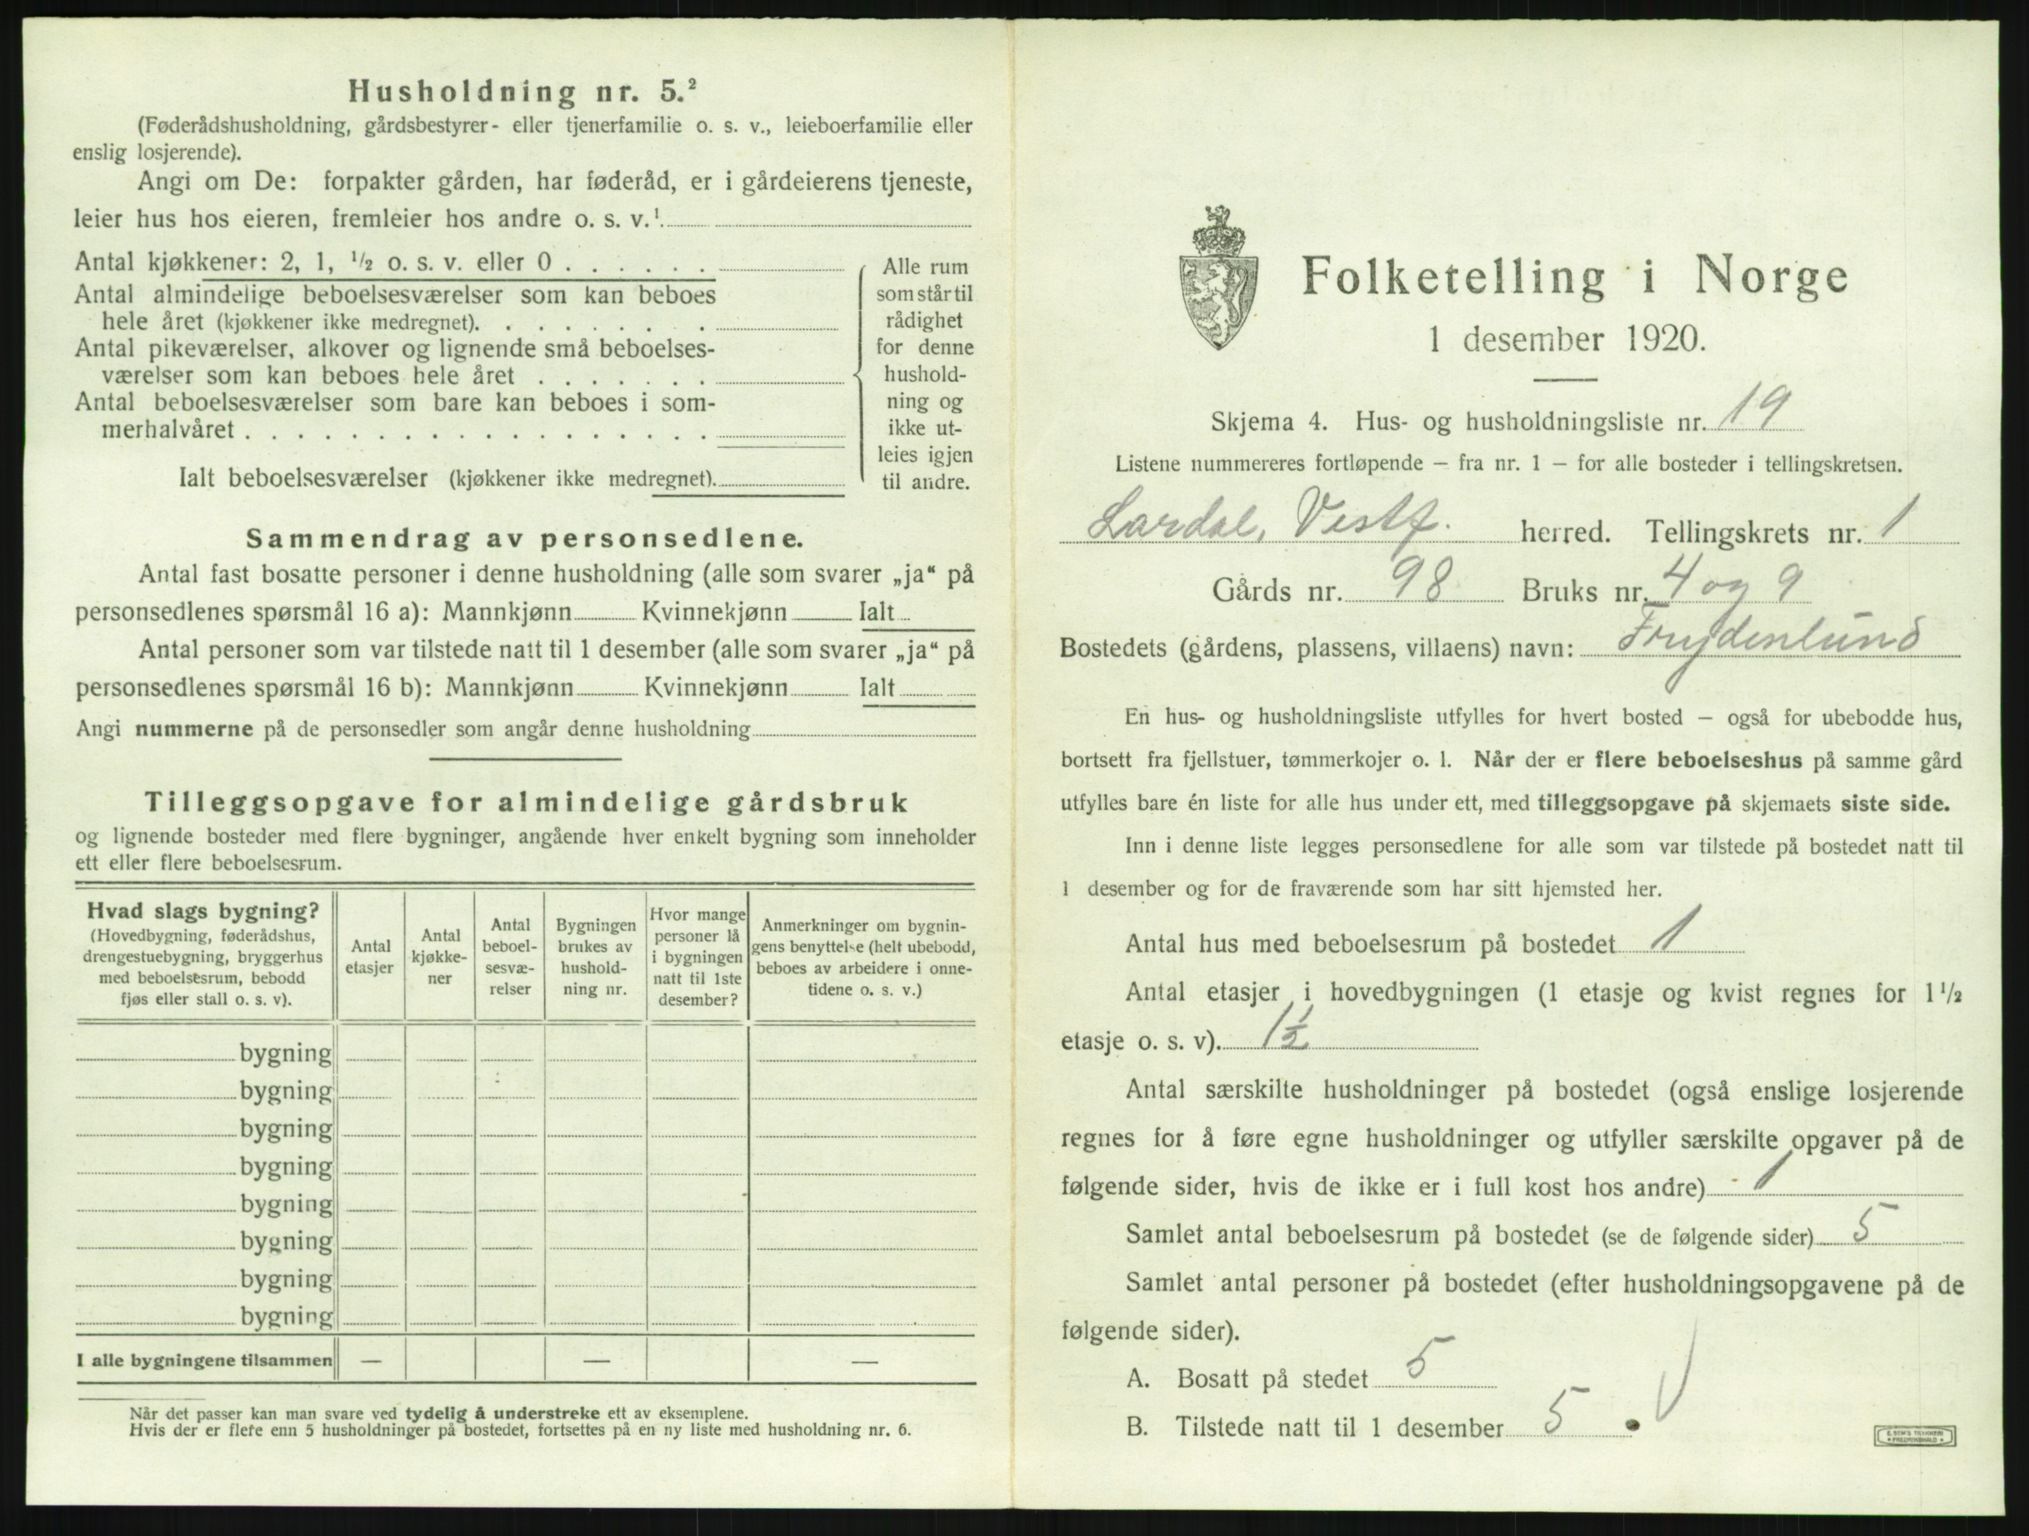 Husholdning nr. 5.²
(Føderådshusholdning, gårdsbestyrer- eller tjenerfamilie o. s. v., leieboerfamilie eller
enslig losjerende).
Angi om De: forpakter gården, har føderåd, er i gårdeierens tjeneste,
leier hus hos eieren, fremleier hos andre o. s. v.¹
Antal kjøkkener: 2, 1, ½ o. s. v. eller 0 . . . . . .
Antal almindelige beboelsesværelser som kan beboes
hele året (kjøkkener ikke medregnet). . . . . . . .
Antal pikeværelser, alkover og lignende små beboelses-
værelser som kan beboes hele året . . . . . . .
Antal beboelsesværelser som bare kan beboes i som-
merhalvåret . . . . . . . . . . . . . . . . . .
Ialt beboelsesværelser (kjøkkener ikke medregnet).
Alle rum
som står til
rådighet
for denne
hushold-
ning og
ikke ut-
leies igjen
til andre.
Sammendrag av personsedlene.
Antal fast bosatte personer i denne husholdning (alle som svarer „ja“ på
personsedlenes spørsmål 16 a): Mannkjønn Kvinnekjønn Ialt
Antal personer som var tilstede natt til 1 desember (alle som svarer „ja“ på
personsedlenes spørsmål 16 b): Mannkjønn Kvinnekjønn Ialt
Angi nummerne på de personsedler som angår denne husholdning
Tilleggsopgave for almindelige gårdsbruk
og lignende bosteder med flere bygninger, angående hver enkelt bygning som inneholder
ett eller flere beboelsesrum.
Hvad slags bygning?
(Hovedbygning, føderådshus,
drengestuebygning, bryggerhus
med beboelsesrum, bebodd
fjøs eller stall o. s. v).
Antal
etasjer
Antal
kjøkke-
ner
Antal
beboel-
sesvæ-
relser
Bygningen
brukes av
hushold-
ning nr.
Hvor mange
personer lå
i bygningen
natt til 1ste
desember?
Anmerkninger om bygnin-
gens benyttelse (helt ubebodd,
beboes av arbeidere i onne-
tidene o. s. v.)
bygning
bygning
bygning
bygning
bygning
bygning
bygning
bygning
I alle bygningene tilsammen — — —
Når det passer kan man svare ved tydelig å understreke ett av eksemplene.
Hvis der er flere enn 5 husholdninger på bostedet, fortsettes på en ny liste med husholdning nr. 6.
Folketelling i Norge
1 desember 1920.
Skjema 4. Hus- og husholdningsliste nr. 19
Listene nummereres fortløpende – fra nr. 1 – for alle bosteder i tellingskretsen.
Lardal, Vestf. herred. Tellingskrets nr. 1
Gårds nr. 98 Bruks nr. 4 og 9
Bostedets (gårdens, plassens, villaens) navn: Frydenlund
En hus- og husholdningsliste utfylles for hvert bosted – også for ubebodde hus,
bortsett fra fjellstuer, tømmerkojer o. l. Når der er flere beboelseshus på samme gård
utfylles bare én liste for alle hus under ett, med tilleggsopgave på skjemaets siste side.
Inn i denne liste legges personsedlene for alle som var tilstede på bostedet natt til
1 desember og for de fraværende som har sitt hjemsted her.
Antal hus med beboelsesrum på bostedet 1
Antal etasjer i hovedbygningen (1 etasje og kvist regnes for 1½
etasje o. s. v). 1½
Antal særskilte husholdninger på bostedet (også enslige losjerende
regnes for å føre egne husholdninger og utfyller særskilte opgaver på de
følgende sider, hvis de ikke er i full kost hos andre) 1
Samlet antal beboelsesrum på bostedet (se de følgende sider) 5
Samlet antal personer på bostedet (efter husholdningsopgavene på de
følgende sider).
A. Bosatt på stedet 5
B. Tilstede natt til 1 desember 5